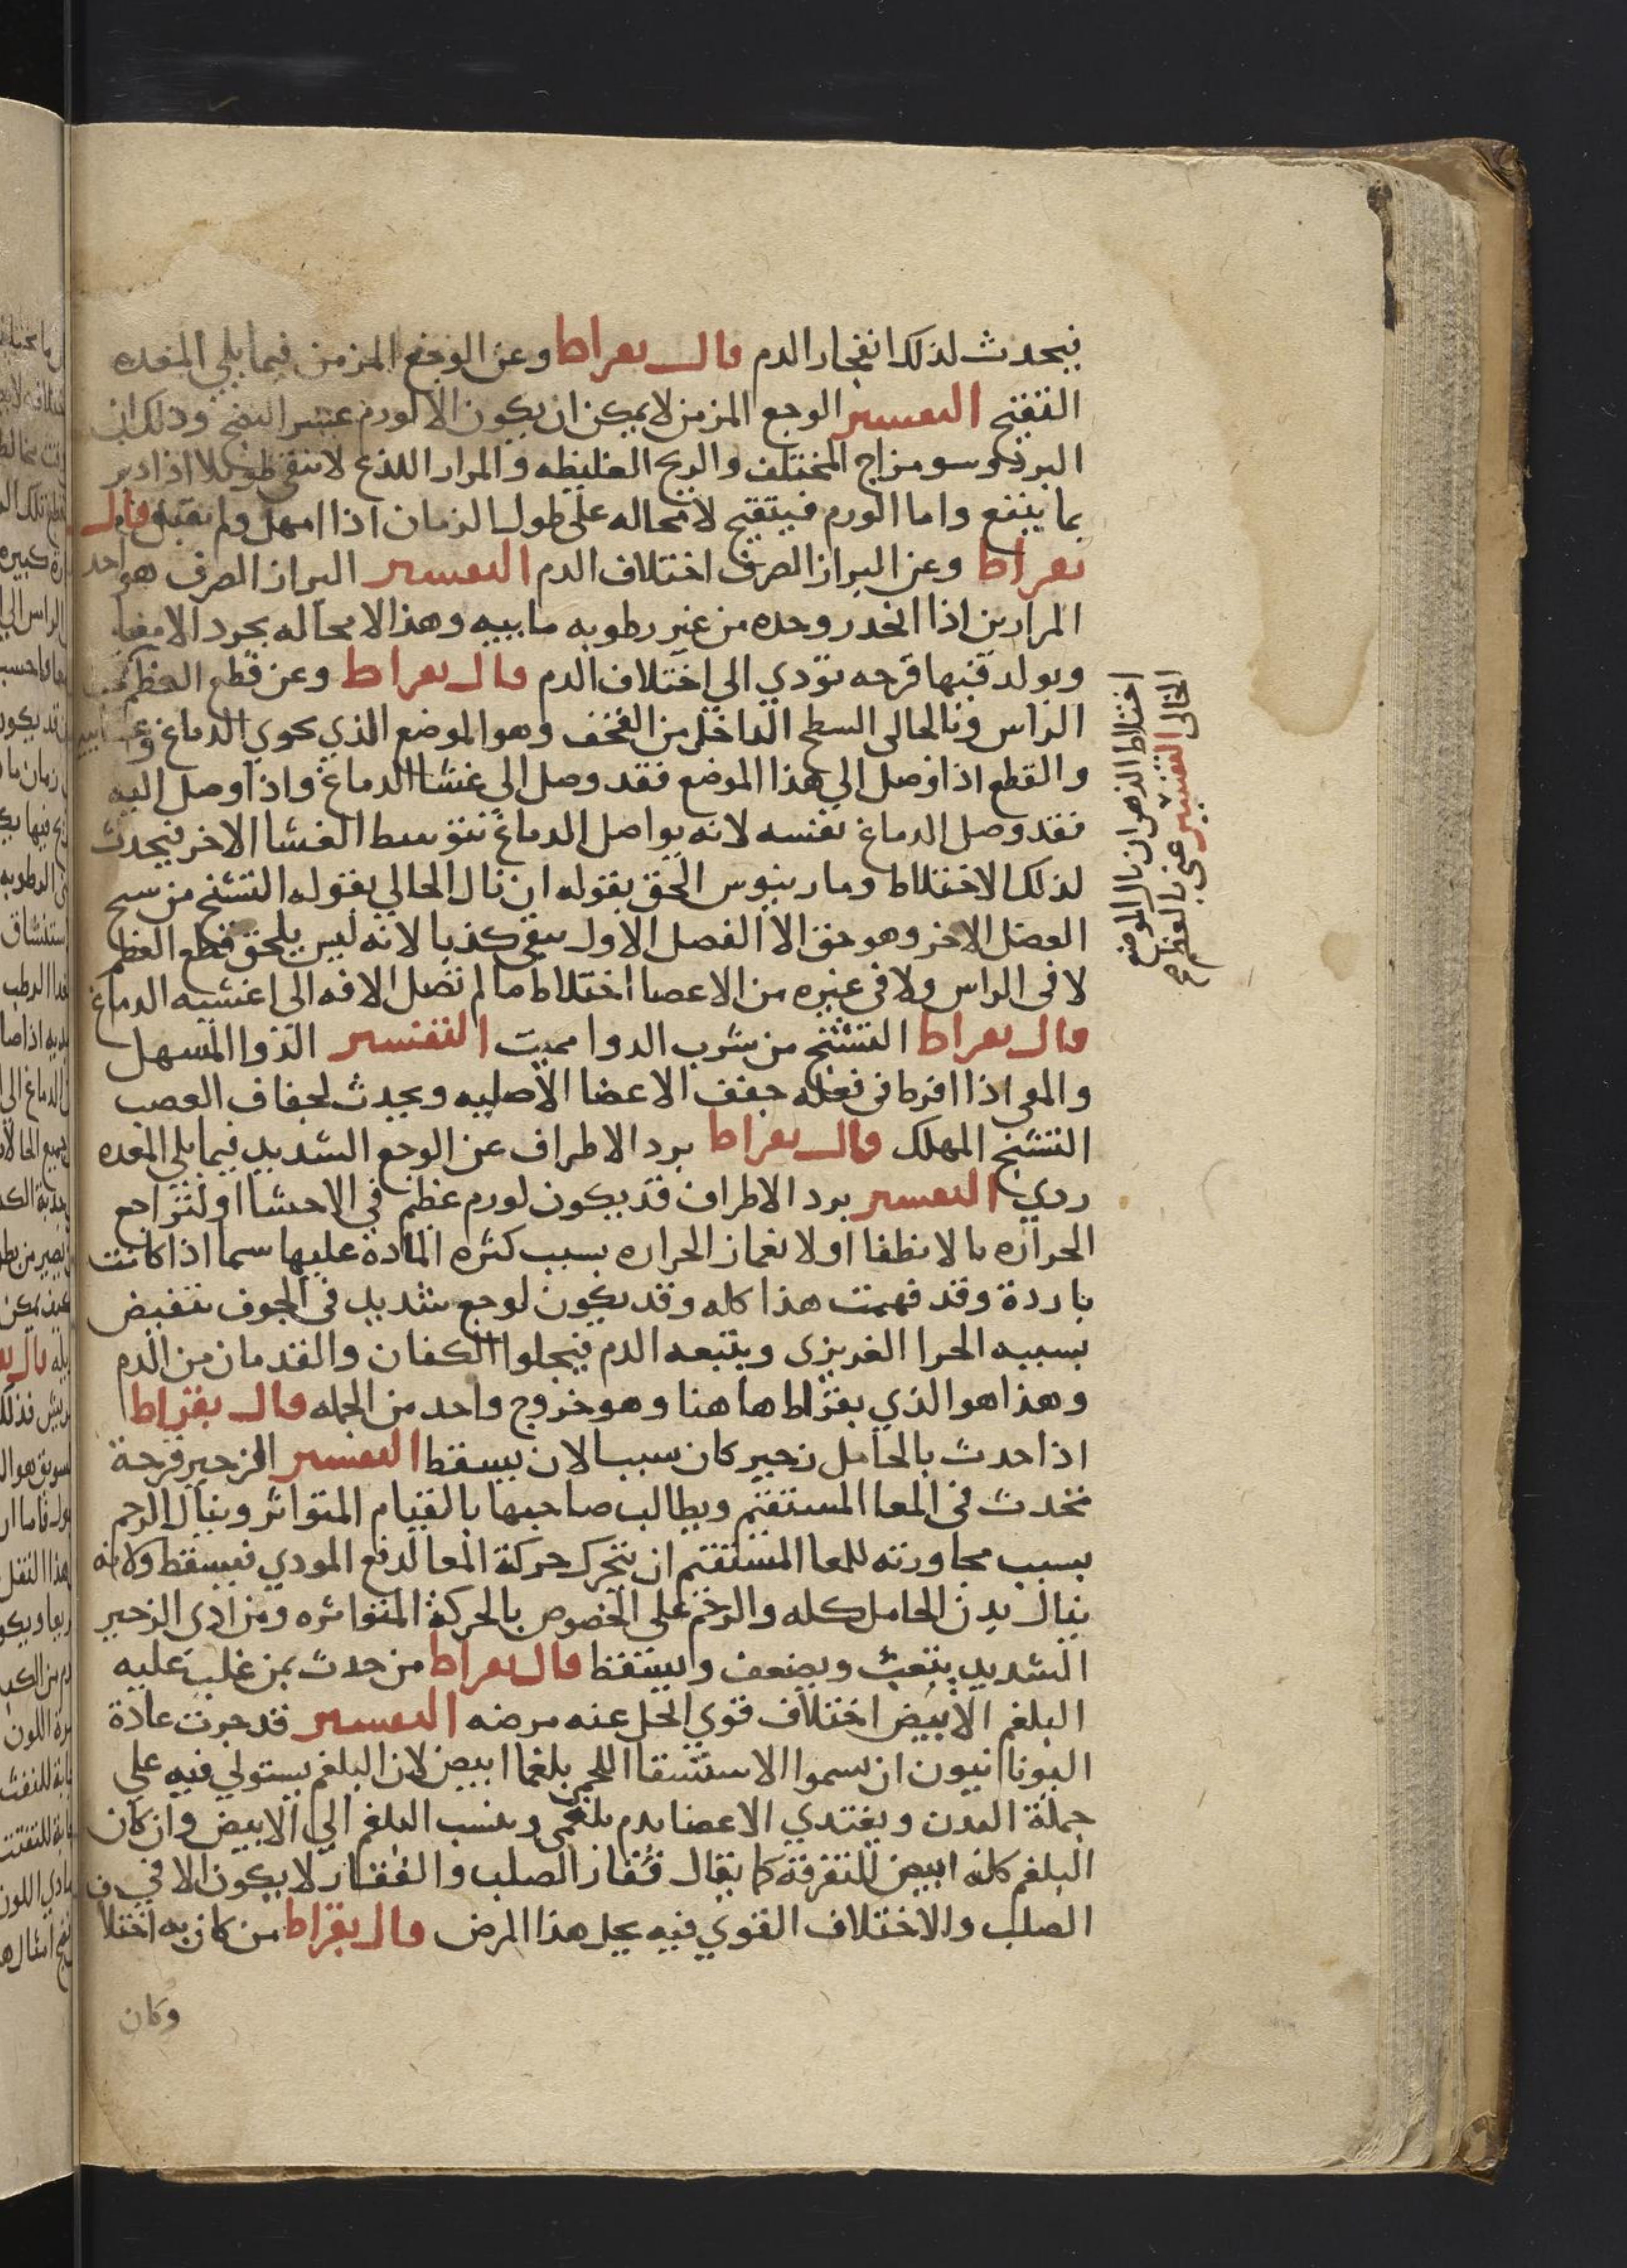 فيحدث لذلك انفجار الدم قال بقراط وعن الوجع المزمن فيما يلي المعده
التقيح التفسير الوجع المزمن لا يمكن ان يكون الا لورم عسر النضج وذلك ان
البرد وسو مزاج المختلف والريح الغليظه والمرار اللذع لا تبقى طويلا اذا دبر
بما ينفع واما الورم فيتقيح لا محاله على طول الزمان اذا امهل ولم قال
بقراط وعن البراز الصرف اختلاف الدم التفسير البراز الصرف هو احد
المرارين اذا انحدر وحده من غير رطوبه ماييه وهذا لا محاله يجرد الامعا
ويولد فيها قرحه تودي الي اختلاف الدم قال بقراط وعن قطع العظم
الراس ونا لحالى السطح الداخل من القحف وهو الموضع الذي يحوي الدماغ
والقطع اذا وصل الي هذا الموضع فقد وصل الى غشا الدماغ واذا وصل اليه
فقد وصل الدماغ نفسه لانه يواصل الدماغ بتوسط الغشا الاخر فيحدث
لذلك الاختلاط ومارينوس الحق بقوله ان نال الخالي بقوله التشنج من سح
الفصل الاخر وهو حق الا الفصل الاول يبقى كذبا لانه ليس يلحق قطع العظم
لا فى الراس ولا فى غيره من الاعضا اختلاط ما لم تصل الافه الى اغشيه الدماغ
قال بقراط التشنج من شرب الدوا مميت التفسير الدوا المسهل
والمقى اذا افرط فى فعله جفف الاعضا الاصليه ويحدث لجفاف العصب
التشنج المهلك قال بقراط برد الاطراف عن الوجع الشديد فيما يلي المعده
ردي التفسير برد الاطراف قد يكون لورم عظيم في الاحشا او لتراجع
الحراره بالانطفا او لانغمار الحراره بسبب كثره المادة عليها سيما اذا كانت
باردة وقد فهمت هذا كله وقد يكون لوجع شديد في الجوف تنقبض
بسببه الحرا الغريزى ويتبعه الدم فيجلوا الكفان والقدمان من الدم
وهذا هو الذي بقراط ها هنا وهو خروج واحد من الجمله قال بقراط
اذا حدث بالحامل زحير كان سببا لان يسقط التفسير الزحير قرحة
تحدث فى المعا المستقيم ويطالب صاحبها بالقيام المتواتر وينال الرحم
بسبب مجاورته للمعا المستقيم ان يتحرك حركة المعا لدفع المودي فيسقط ولانه
ينال بدن الحامل كله والرحم على الخصوص بالحركة المتواتره ومن ادى الزحير
الشديد يتعب ويضعف ويسقط قال بقراط من حدث بمن غلب عليه
البلغم الابيض اختلاف قوي انحل عنه مرضه التفسير قد جرت عادة
اليونانيون ان يسموا الاستسقا اللحمى بلغما ابيض لان البلغم يستولي فيه علي
جملة البدن ويغتدي الاعضا بدم بلغمى وينسب البلغم الي الابيض وان كان
البلغم كله ابيض للتفرقة كما يقال فقار الصلب والفقار لا يكون الا في
الصلب والاختلاف القوي فيه يحل هذا المرض قال بقراط من كان به اختلا
وكان
اختلاط الذهن ان نال الموضع
الخالى التفسير عنى بالعظم